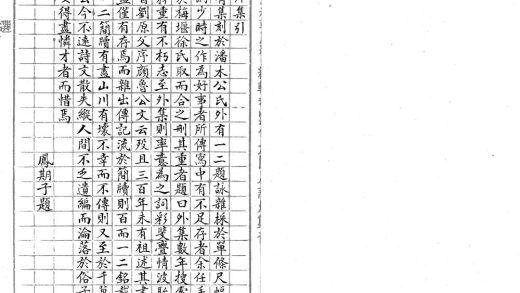 集引
有集刻於潘木公氏外有一二題詠雜採於單條尺幅
少時之作為好事者所傳寫中有不足存者余任手
於梅堰徐氏取而合之刑其重者題曰外集數年搜
斜重有不朽志至外集則率意為之詞彩斐亹情波
昔劉原父序顏魯公文云歿且三百年未有祖述其書
盡僅有存焉而雜出傳記流於簡牘則百而一二銘
二簡牘有盡山川有壞不幸而不傳則又至於千萬
公今不遠詩文散失縱人間不乏遺編而淪落於俗子
得盡憐才者而惜焉
鳳期子題
選